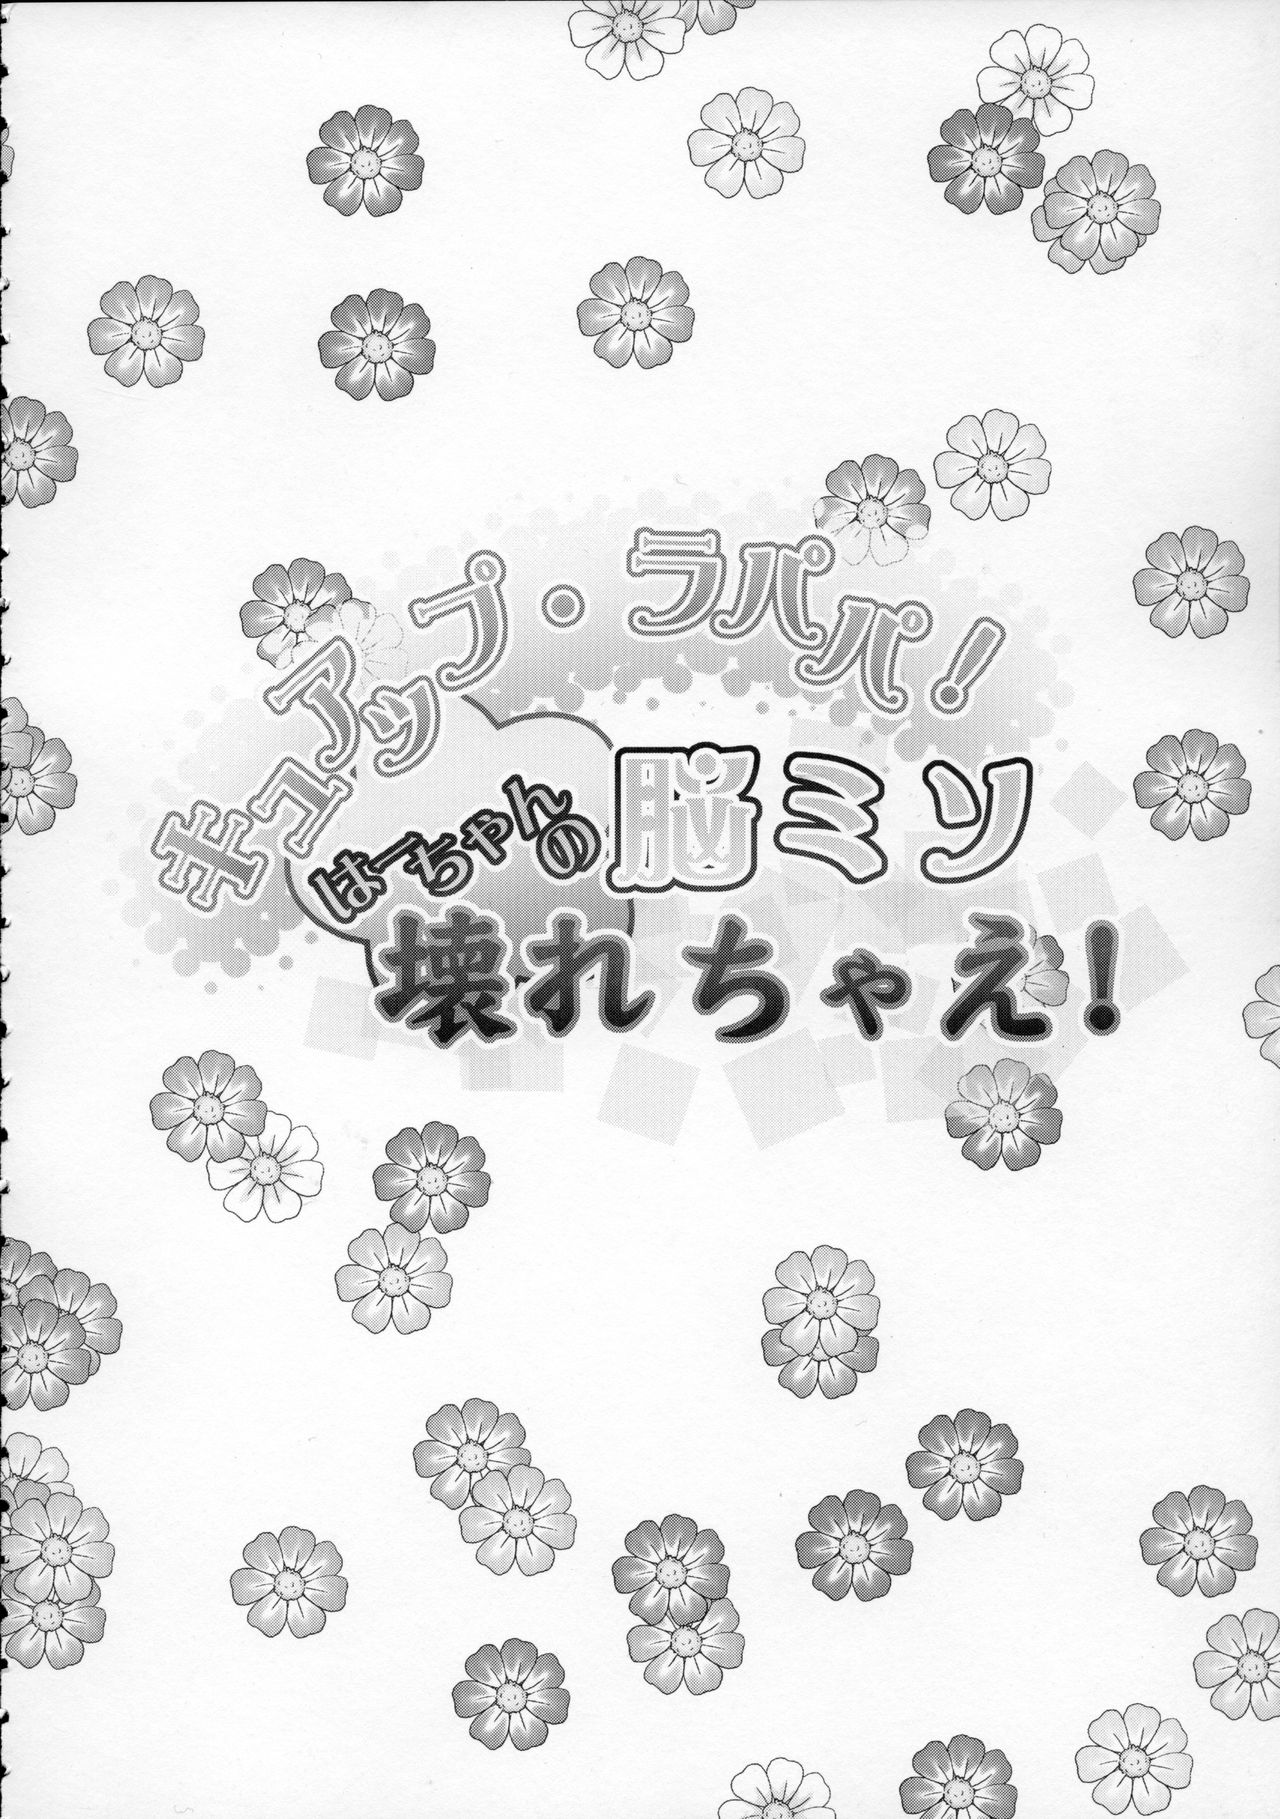 キュアップ・ラパパ!
はーちゃんの脳ミソ
壊れちゃえ!